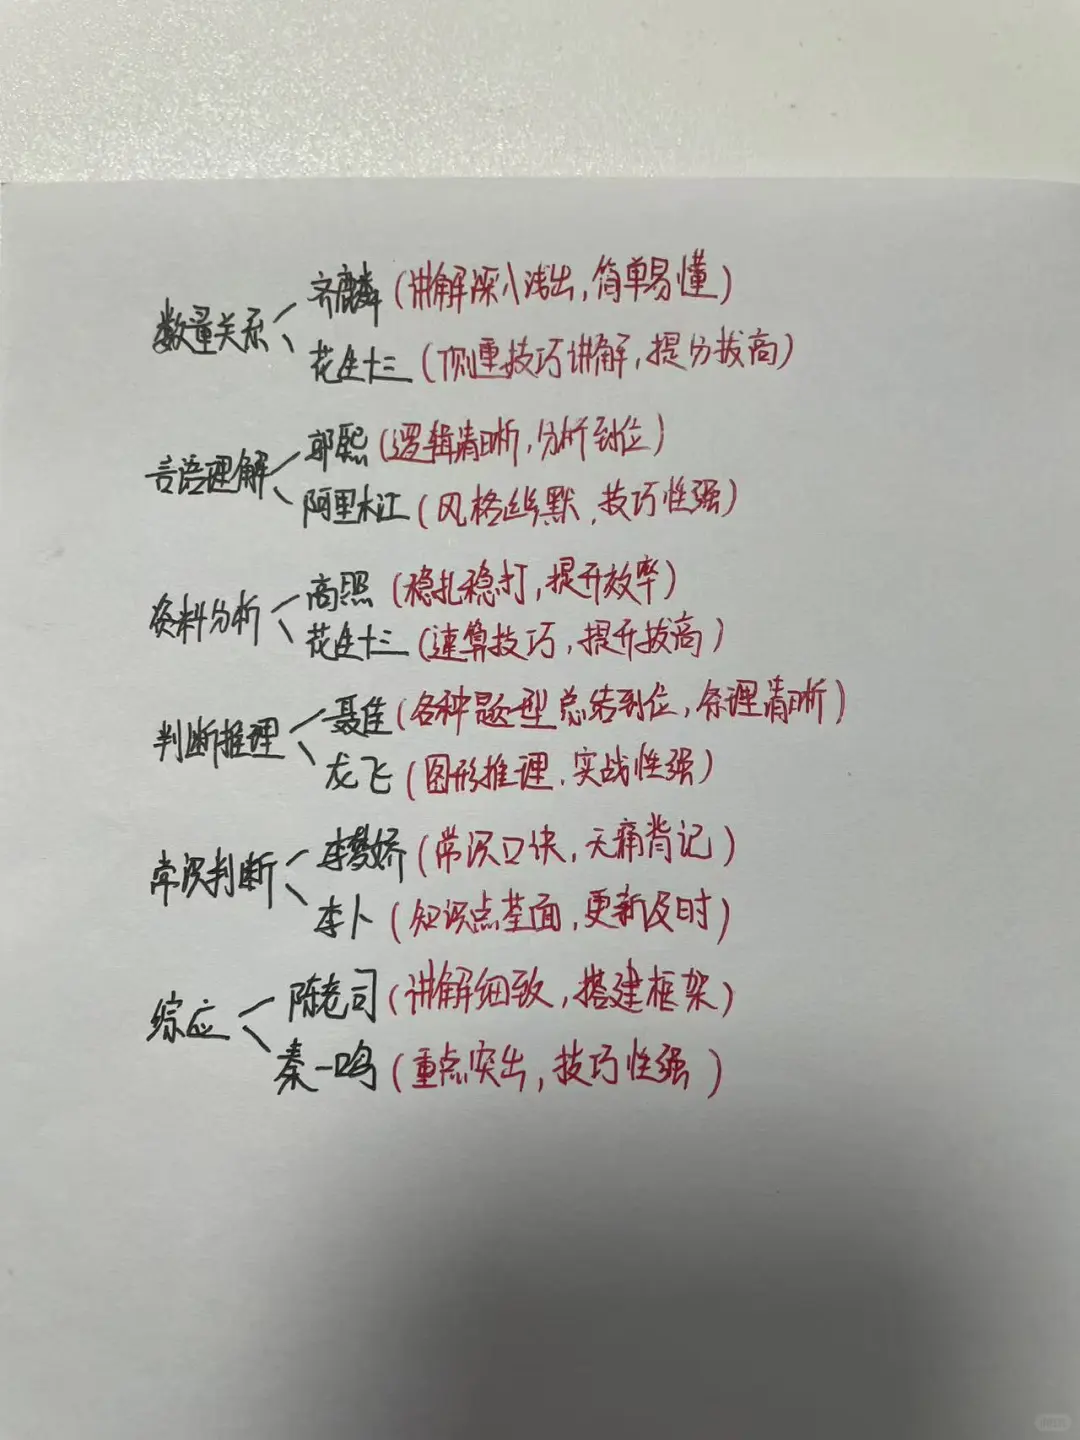 数量关系
齐麟(讲解深入浅出,简单易懂)
花生十三(侧重技巧讲解,提分拔高)
言语理解
郭熙(逻辑清晰,分析到位)
阿里木江(风格幽默,技巧性强)
资料分析
高照(稳扎稳打,提升效率)
花生十三(速算技巧,提升拔高)
判断推理
聂佳(各种题型总结到位,条理清晰)
龙飞(图形推理,实战性强)
常识判断
李梦娇(常识口诀,无痛背记)
李卜(知识点全面,更新及时)
综应
陈老司(讲解细致,搭建框架)
秦一鸣(重点突出,技巧性强)